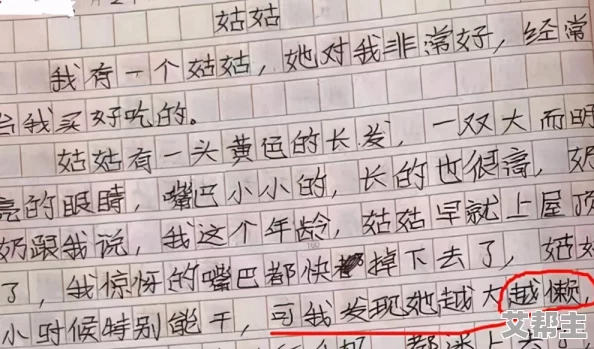 姑姑
我有一个姑姑，她对我非常好，经常
给我买好吃的。
姑姑有一头黄色的长发，一双大而明
亮的眼睛，嘴巴小小的，长的也很高，奶
奶跟我说，我这个年龄，姑姑早就上屋顶
了，我惊讶的嘴巴都快掉下去了，姑姑
小时候特别能干，可我发现她越大越懒，
都迷上
艾帮主